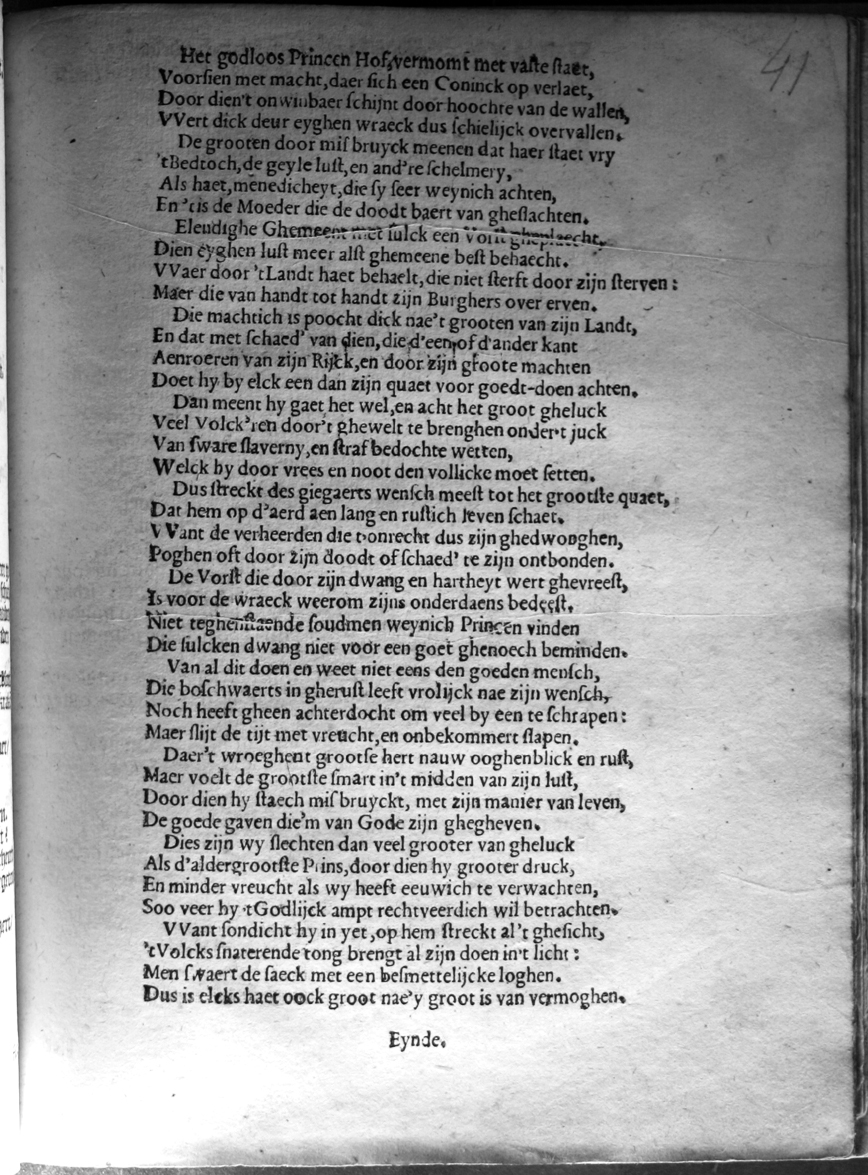 41
Het godloos Princen Hof, vermomt met vaſte ſtaet,
Voorſien met macht, daer ſich een Coninck op verlaet,
Door dien't onwinbaer ſchijnt door hoochte van de wallen,
VVert dick deur eyghen wraeck dus ſchielijck overvallen.
De grooten door miſbruyck meenen dat haer ſtaet vry
'tBedtoch, de geyle luſt, en and're ſchelmery,
Als haet, menedicheyt, die ſy ſeer weynich achten,
En 'tis de Moeder die de doodt baert van gheſlachten.
Elendighe Ghemeent met ſulck een Vorſt gheplaecht,
Dien eyghen luſt meer alſt ghemeene beſt behaecht.
VVaer door 'tLandt haet behaelt, die niet ſterft door zijn ſterven:
Maer die van handt tot handt zijn Burghers over erven.
Die machtich is poocht dick nae't grooten van zijn Landt,
En dat met ſchaed' van dien, die d'een of d'ander kant
Aenroeren van zijn Rijck, en door zijn groote machten
Doet hy by elck een dan zijn quaet voor goedt-doen achten.
Dan meent hy gaet het wel, en acht het groot gheluck
Veel Volck'ren door't ghewelt te brenghen onder't juck
Van ſware ſlaverny, en ſtraf bedochte wetten,
Welck hy door vrees en noot den vollicke moet ſetten.
Dus ſtreckt des giegaerts wenſch meeſt tot het grootſte quaet,
Dat hem op d'aerd aen lang en ruſtich leven ſchaet.
VVant de verheerden die tonrecht dus zijn ghedwonghen,
Poghen oft door zijn doodt of ſchaed' te zijn ontbonden.
De Vorſt die door zijn dwang en hartheyt wert ghevreeſt,
Is voor de wraeck weerom zijns onderdaens bedeeſt.
Niet teghenſtaende ſoudmen weynich Princen vinden
Die ſulcken dwang niet voor een goet ghenoech beminden.
Van al dit doen en weet niet eens den goeden menſch,
Die boſchwaerts in gheruſt leeft vrolijck nae zijn wenſch,
Noch heeft gheen achterdocht om veel by een te ſchrapen:
Maer ſlijt de tijt met vreucht, en onbekommert ſlapen.
Daer't wroeghent grootſe hert nauw ooghenblick en ruſt,
Maer voelt de grootſte ſmart in't midden van zijn luſt,
Door dien hy ſtaech miſbruyckt, met zijn manier van leven,
De goede gaven die'm van Gode zijn ghegheven.
Dies zijn wy ſlechten dan veel grooter van gheluck
Als d'aldergrootſte Prins, door dien hy grooter druck,
En minder vreucht als wy heeft eeuwich te verwachten,
Soo veer hy 'tGodlijck ampt rechtveerdich wil betrachten.
VVant ſondicht hy in yet, op hem ſtreckt al't gheſicht,
'tVolcks ſnaterende tong brengt al zijn doen in't licht:
Men ſwaert de ſaeck met een beſmettelijcke loghen.
Dus is elcks haet oock groot nae'y groot is van vermoghen.
Eynde.